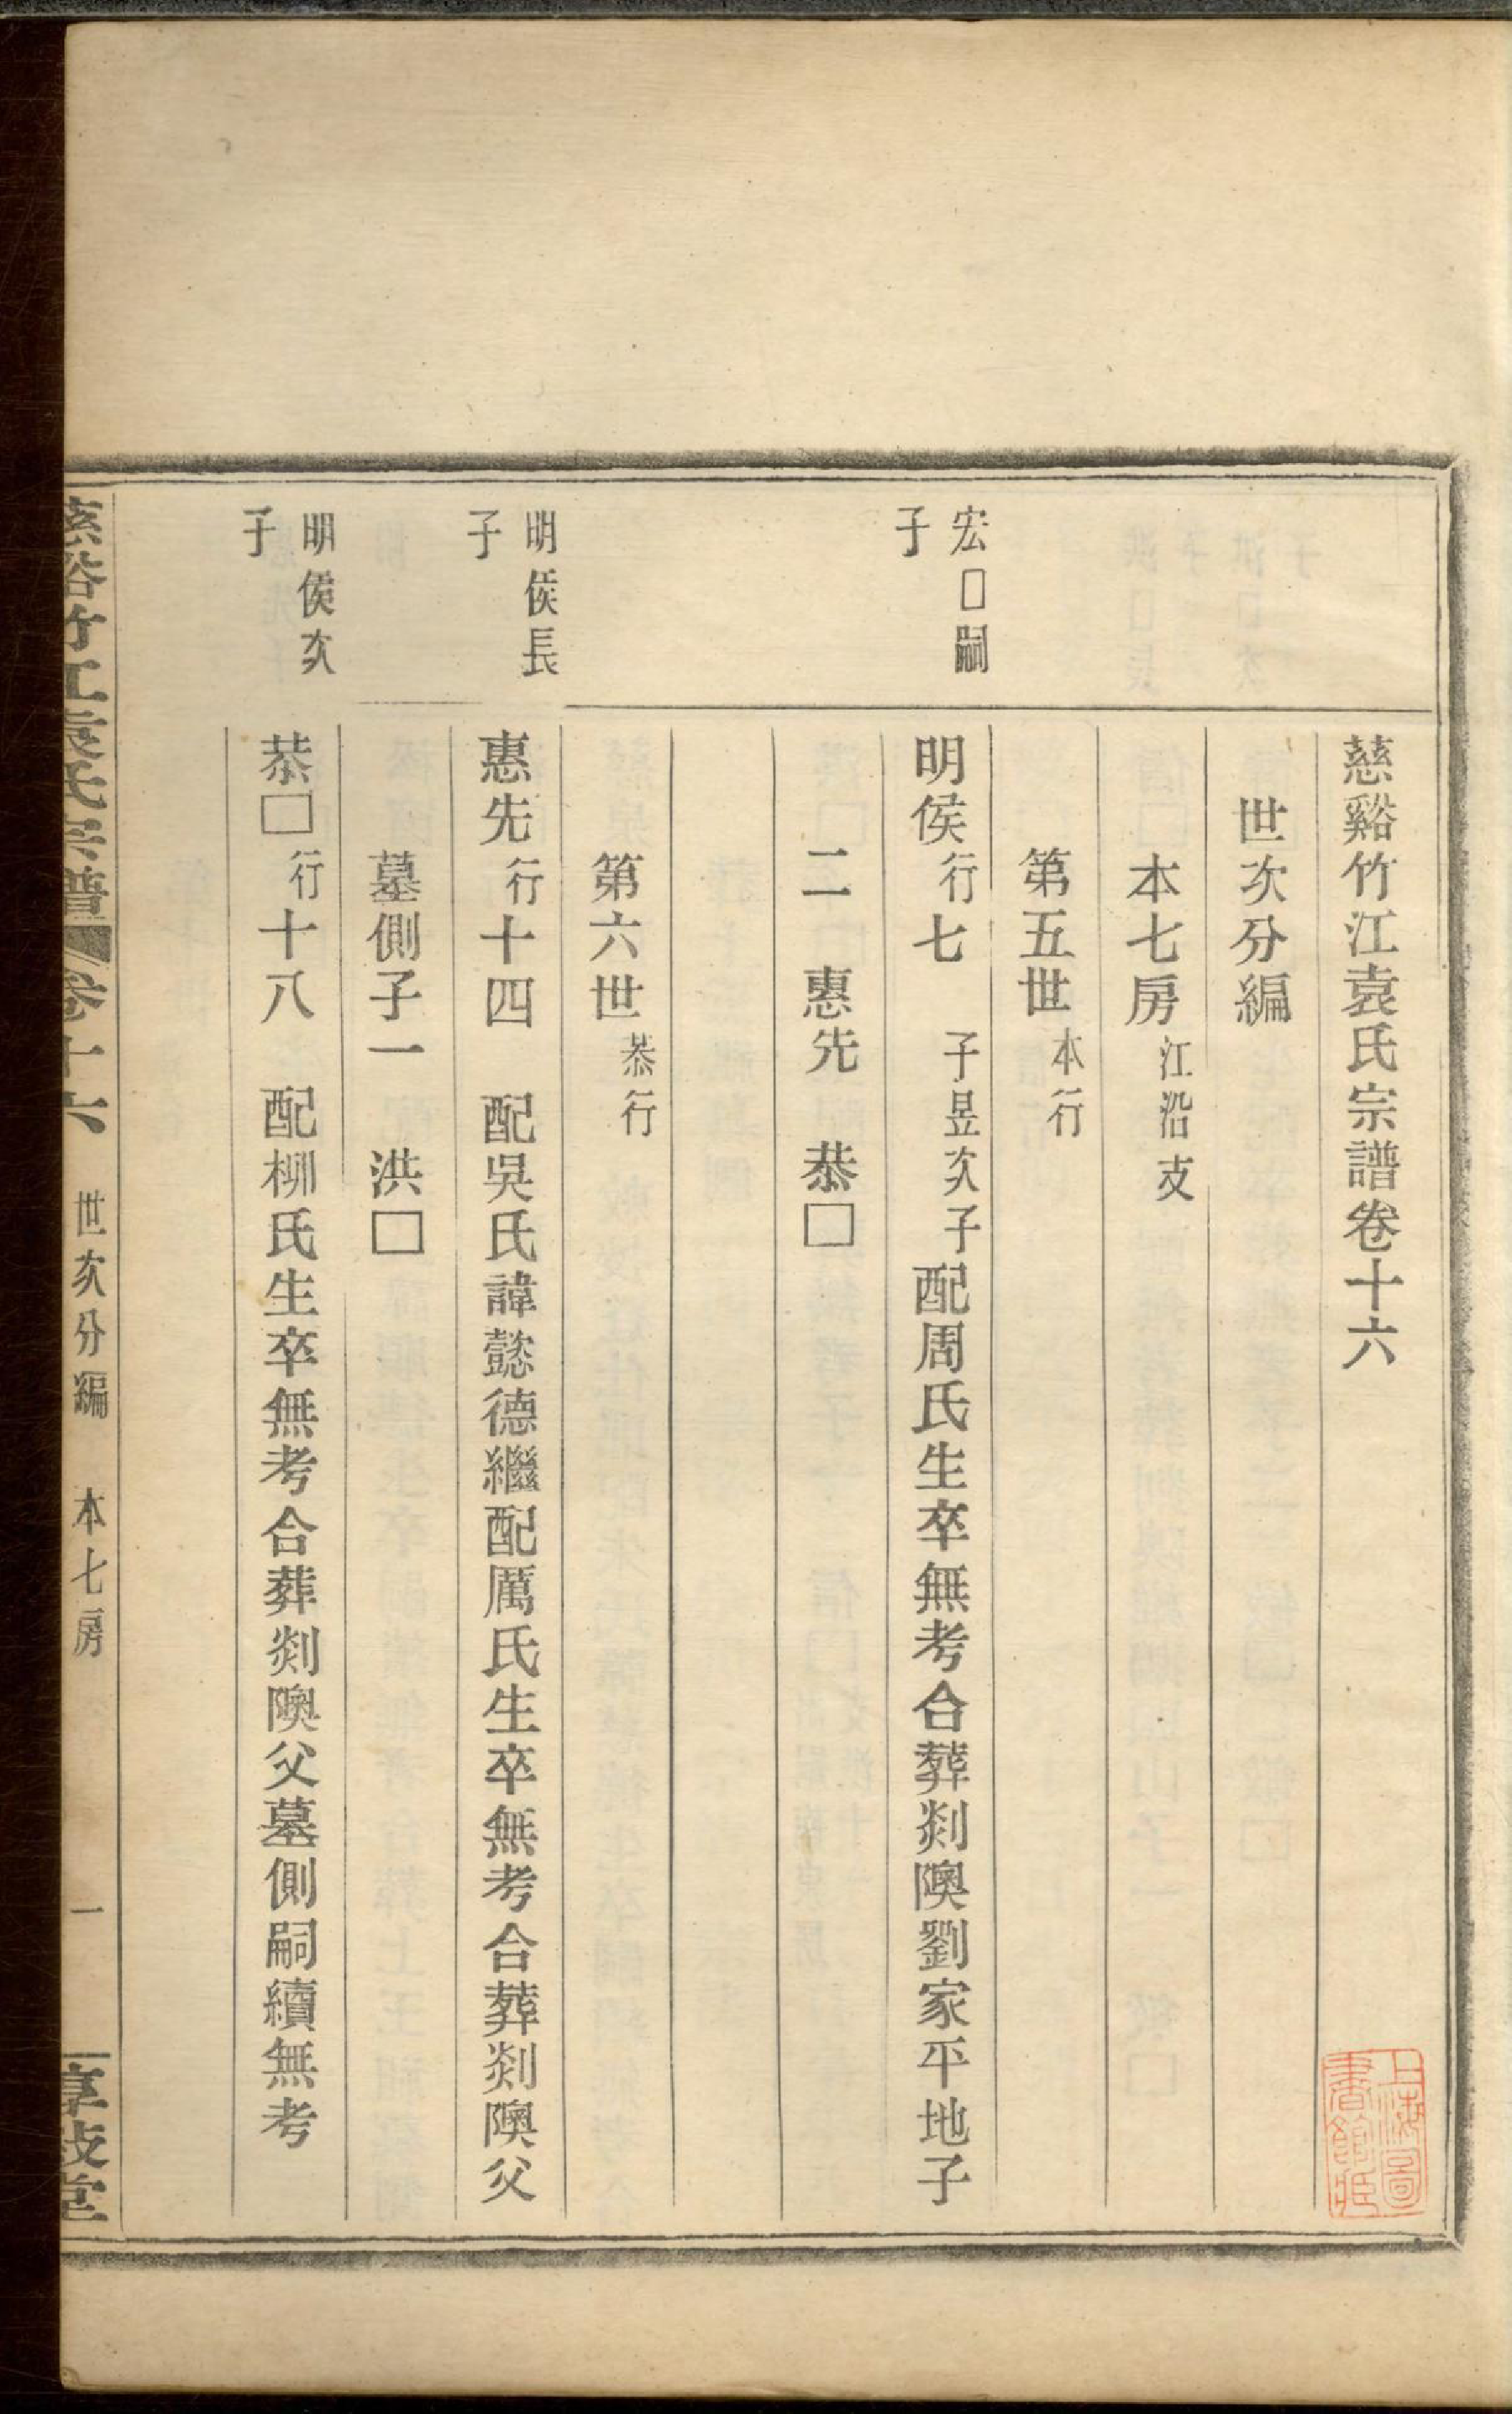 慈谿竹江袁氏宗譜卷十六
世次分編
本七房江沿支
第五世本行
宏□嗣子
明侯行七　子昱次子配周氏生卒無考合葬剡隩劉家平地子
二　惠先　恭□
第六世恭行
明侯長子
惠先行十四　配吳氏諱懿德繼配厲氏生卒無考合葬剡隩父
墓側子一　洪□
明侯次子
恭□行十八　配柳氏生卒無考合葬剡隩父墓側嗣續無考
慈谿竹江袁氏宗譜　卷十六　世次分編　本七房　一
上海圖書館藏